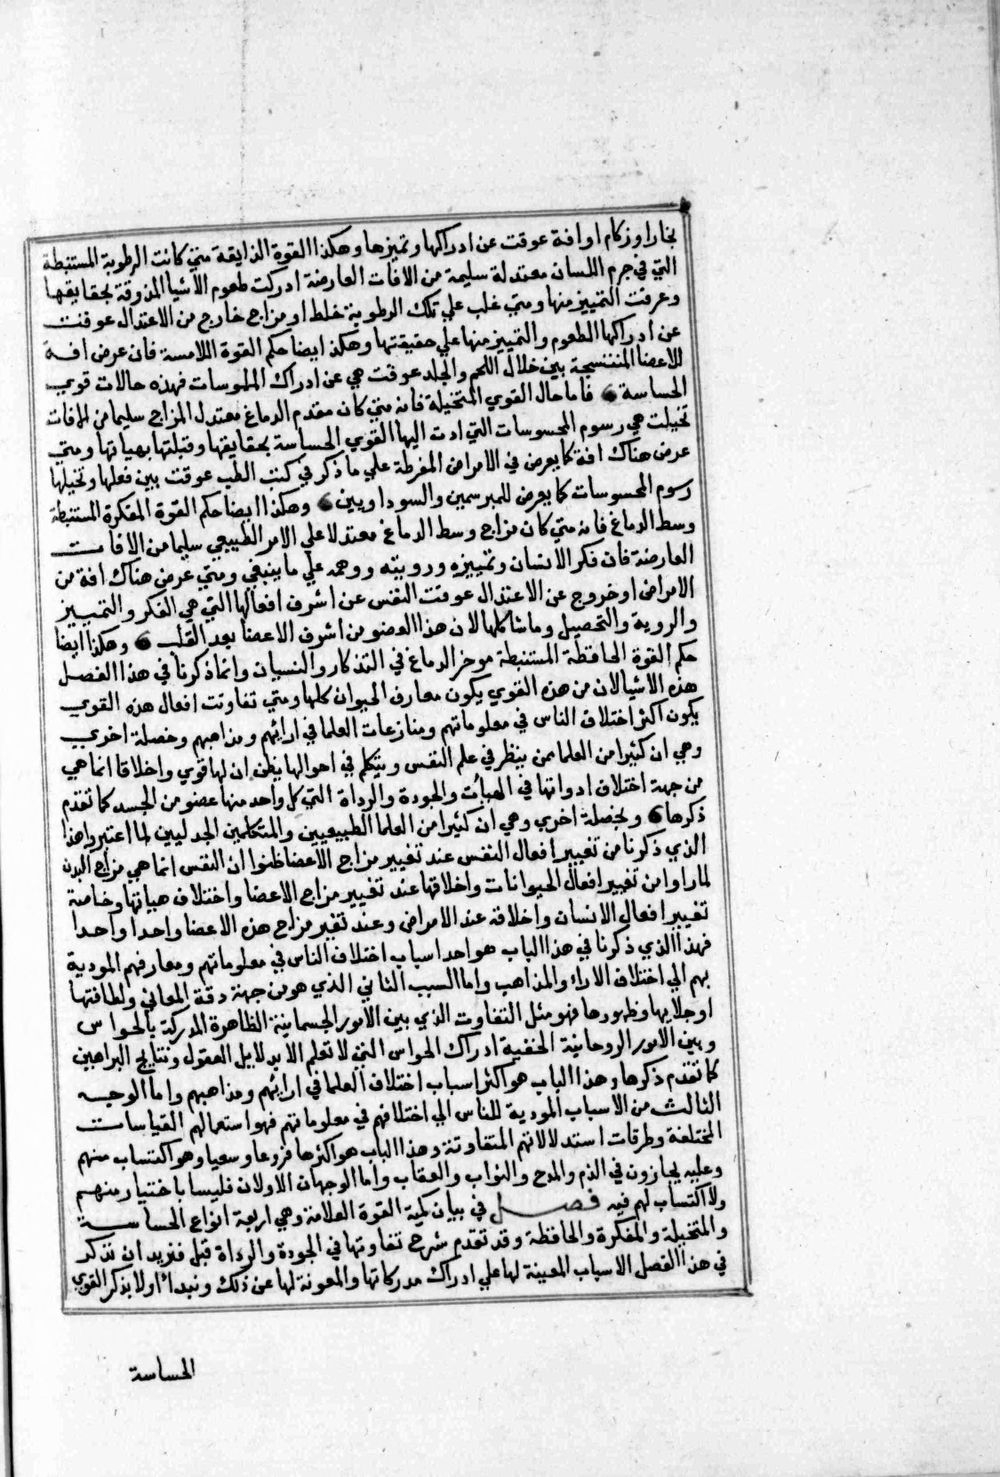 بخارا وزكام او افة عوقت عن ادراكها وتميزها وهكذا القوة الذايقة متي كانت الرطوبة المستنبطة
التي في جرم اللسان معتدلة سليمة من الافات العارضة ادركت طعوم الاشيا المذوقة بحقايقها
وعرفت التمييز منها ومتي غلب علي تلك الرطوبة خلط او مزاج خارج من الاعتدال عوقت
عن ادراكها الطعوم والتمييز منها علي حقيقتها وهكذا ايضا حكم القوة اللامسة فان عرض افة
للاعضا المنتسجة بين خلال اللحم والجلد عوقت هي عن ادراك الملموسات فهذه حالات قوي
الحساسة ۞ فاما حال القوي المتخيلة فانه متي كان مقدم الدماغ معتدل المزاج سليما من الافات
تخيلت هي رسوم المحسوسات التي ادت اليها القوي الحساسة بحقايقها وقبلتها بهياتها ومتي
عرض هناك افة كما يعرض في الامراض المفرطة علي ما ذكر في كتب الطب عوقت بين فعلها وتخيلها
رسوم المحسوسات كما يعرض للمبرسمين والسوداويين ۞ وهكذا ايضا حكم القوة المفكرة المستنبطة
وسط الدماغ فانه متي كان مزاج وسط الدماغ معتدلا علي الامر الطبيعي سليما من الافات
العارضة فان فكر الانسان وتمييزه ورويته ووهمه علي ما ينبغي ومتي عرض هناك افة من
الامراض او خروج عن الاعتدال عوقت النفس عن اشرف افعالها التي هي الفكر والتمييز
والروية والتحصيل وما شاكلها لان هذا العضو من اشرف الاعضا بعد القلب ۞ وهكذا ايضا
حكم القوة الحافظة المستنبطة موخر الدماغ في التذكار والنسيان وانما ذكرنا في هذا الفصل
هذه الاشيا لان من هذه القوي يكون معارف الحيوان كلها ومتي تفاوتت افعال هذه القوي
يكون اكثر اختلاف الناس في معلوماتهم ومنازعات العلما في ارائهم ومذاهبهم وخصلة اخري
وهي ان كثيرا من العلما ممن ينظر في علم النفس ويتكلم في احوالها يظن ان لها قوي واخلاقا انما هي
من جهة اختلاف ادواتها في الهيأت والجودة والرداة التي كل واحد منها عضو من الجسد كما تقدم
ذكرها ۞ ولخصلة اخري وهي ان كثيرا من العلما الطبيعيين والمتكلمين الجدليين لما اعتبروا هذا
الذي ذكرنا من تغيير افعال النفس عند تغيير مزاج الاعضا ظنوا ان النفس انما هي مزاج البدن
لما راوا من تغيير افعال الحيوانات واخلاقها عند تغيير مزاج الاعضا واختلاف هياتها وخاصة
تغيير افعال الانسان واخلاقه عند الامراض وعند تغير مزاج هذه الاعضا واحدا واحدا
فهذا الذي ذكرنا في هذا الباب هو احد اسباب اختلاف الناس في معلوماتهم ومعارفهم المودية
بهم الي اختلاف الاراء والمذاهب واما السبب الثاني الذي هو من جهة دقة المعاني ولطافتها
او جلايها وظهورها فهو مثل التفاوت الذي بين الامور الجسمانية الظاهرة المدركة بالحواس
وبين الامور الروحانية الخفية ادراك الحواس التي لا تعلم الا بدلايل العقول ونتايج البراهين
كما تقدم ذكرها وهذا الباب هو اكثر اسباب اختلاف العلما في ارائهم ومذاهبهم واما الوجه
الثالث من الاسباب المودية للناس الي اختلافهم في معلوماتهم فهو استعمالهم القياسات
المختلفة وطرقات استدلالاتهم المتفاوتة وهذا الباب هو اكثرها فروعا وسعيا وهو اكتساب منهم
وعليه يجازون في الذم والمدح والثواب والعقاب واما الوجهان الاولان فليسا باختيار منهم
ولا اكتساب لهم فيه فصل في بيان كمية القوة العلامة وهي اربعة انواع الحساسة
والمتخيلة والمفكرة والحافظة وقد تقدم شرح تفاوتها في الجودة والرداة قبل فنريد ان نذكر
في هذا الفصل الاسباب المعينة لها علي ادراك مدركاتها والمعونة لها عن ذلك ونبدأ اولا بذكر القوي
الحساسة